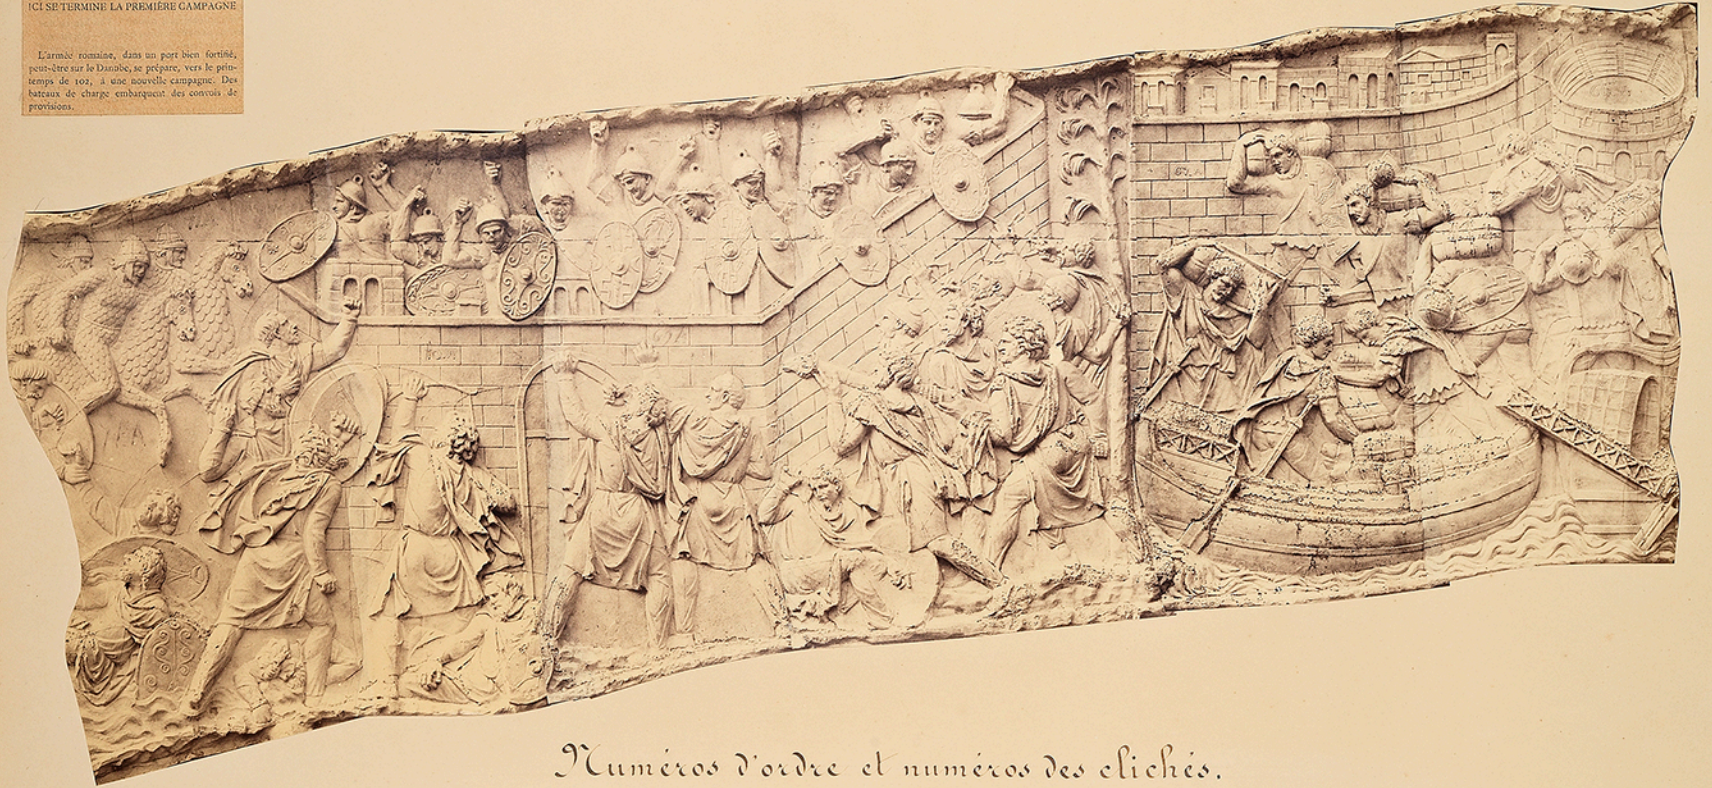 ICI SE TERMINE LA PREMIÈRE CAMPAGNE
L'armée romaine, dans un port bien fortifié,
peut-être sur le Danube, se prépare, vers le prin-
temps de 102, à une nouvelle campagne. Des
bateaux de charge embarquent des convois de
provisions.
Numéros d'ordre et numéros des clichés.